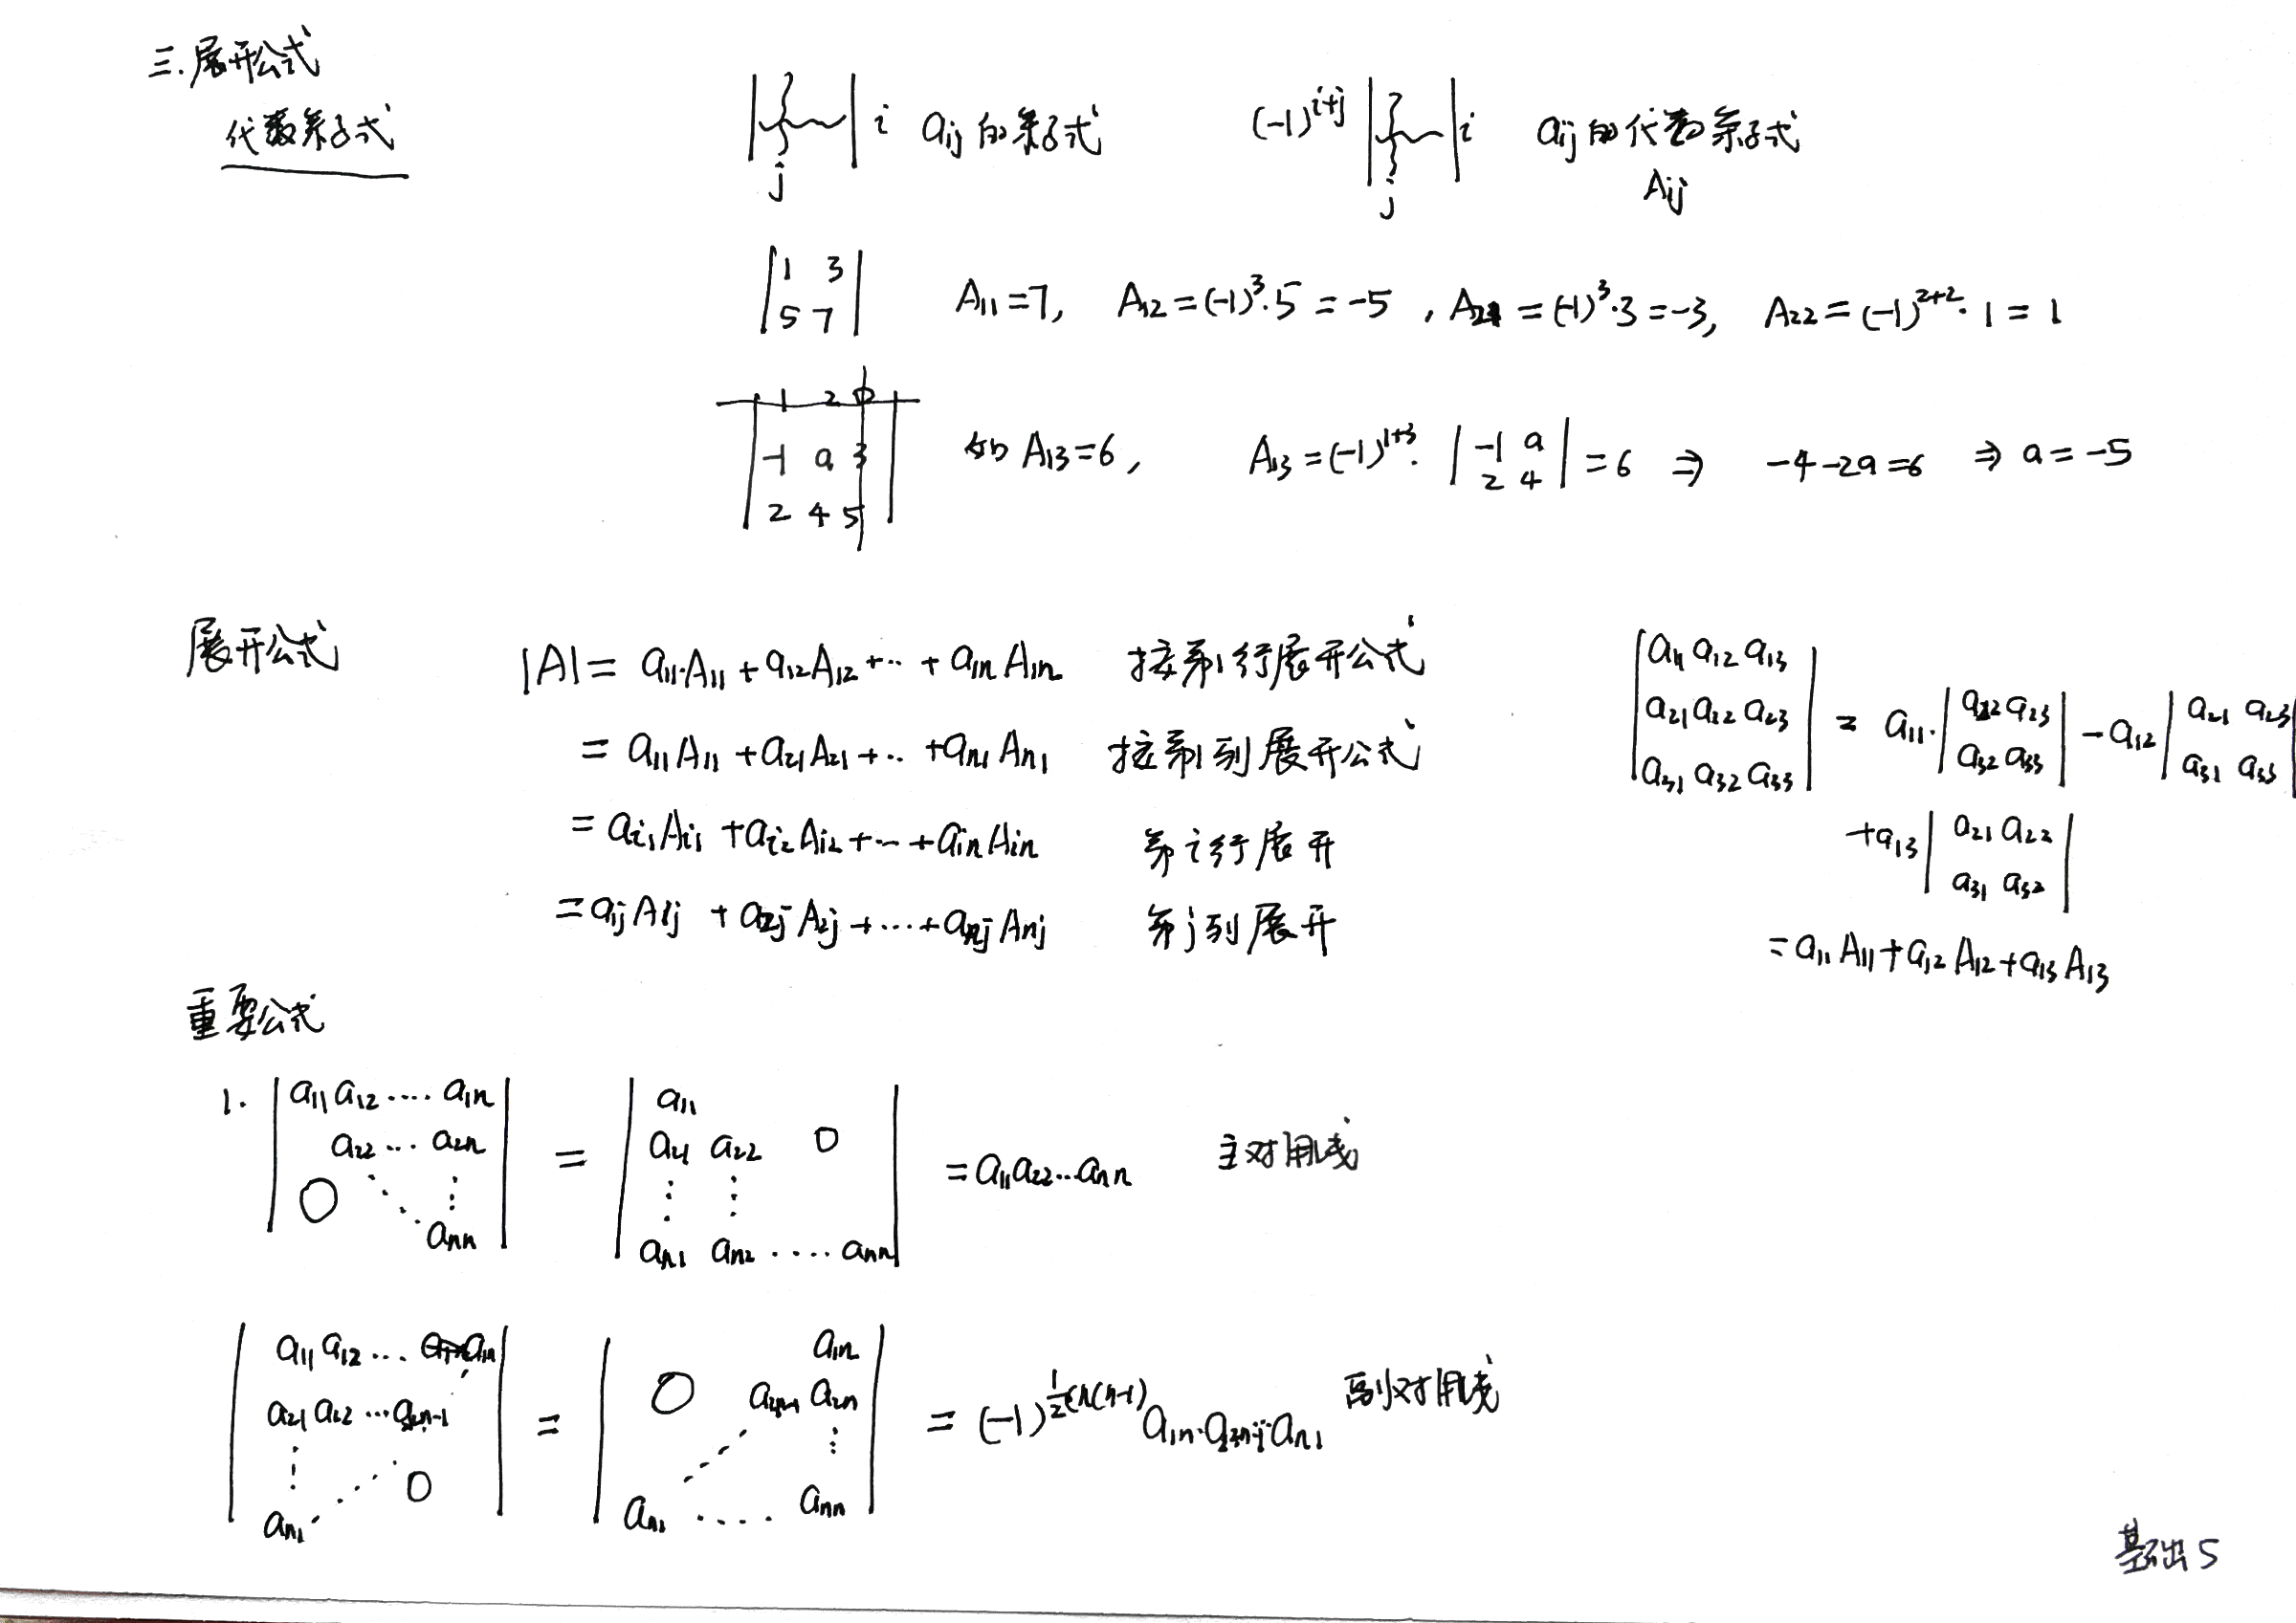 三.展开公式
代数余子式
| | i a_ij 的余子式 (-1)^{i+j} | | i a_ij 的代数余子式
j j A_ij
|1 3|
|5 7| A₁₁=7, A₁₂=(-1)³·5=-5, A₂₁=(-1)³·3=-3, A₂₂=(-1)^{2+2}·1=1
|1 2 0|
|-1 a 3| 如 A₁₃=6, A₁₃=(-1)^{1+3}·|-1 a|=6 ⇒ -4-2a=6 ⇒ a=-5
|2 4 5| |2 4|
展开公式 |A|= a₁₁·A₁₁+a₁₂A₁₂+…+a₁ₙA₁ₙ 按第1行展开公式
= a₁₁A₁₁+a₂₁A₂₁+…+aₙ₁Aₙ₁ 按第1列展开公式
= a_i1 A_i1+a_i2 A_i2+…+a_in A_in 第i行展开
= a_1j A_1j+a_2j A_2j+…+a_nj A_nj 第j列展开
|a₁₁ a₁₂ a₁₃|
|a₂₁ a₂₂ a₂₃| = a₁₁·|a₂₂ a₂₃| -a₁₂|a₂₁ a₂₃|
|a₃₁ a₃₂ a₃₃| |a₃₂ a₃₃| |a₃₁ a₃₃|
+a₁₃|a₂₁ a₂₂|
|a₃₁ a₃₂|
=a₁₁A₁₁+a₁₂A₁₂+a₁₃A₁₃
重要公式
1. |a₁₁ a₁₂ …. a₁ₙ| |a₁₁ |
|a₂₂ … a₂ₙ| = |a₂₁ a₂₂ 0| =a₁₁a₂₂…aₙₙ 主对角线
|0 ⋱ ⋮| |⋮ ⋮ |
|aₙₙ| |aₙ₁ aₙ₂ …. aₙₙ|
|a₁₁ a₁₂ … a₁ₙ| | a₁ₙ|
|a₂₁ a₂₂ … a₂ₙ₋₁| = |0 a₂ₙ₋₁ a₂ₙ| = (-1)^{½n(n-1)} a₁ₙ·a₂ₙ₋₁…aₙ₁ 副对角线
|⋮ ⋰ 0| | ⋰ ⋮|
|aₙ₁ | |aₙ₁ …. aₙₙ|
基础5